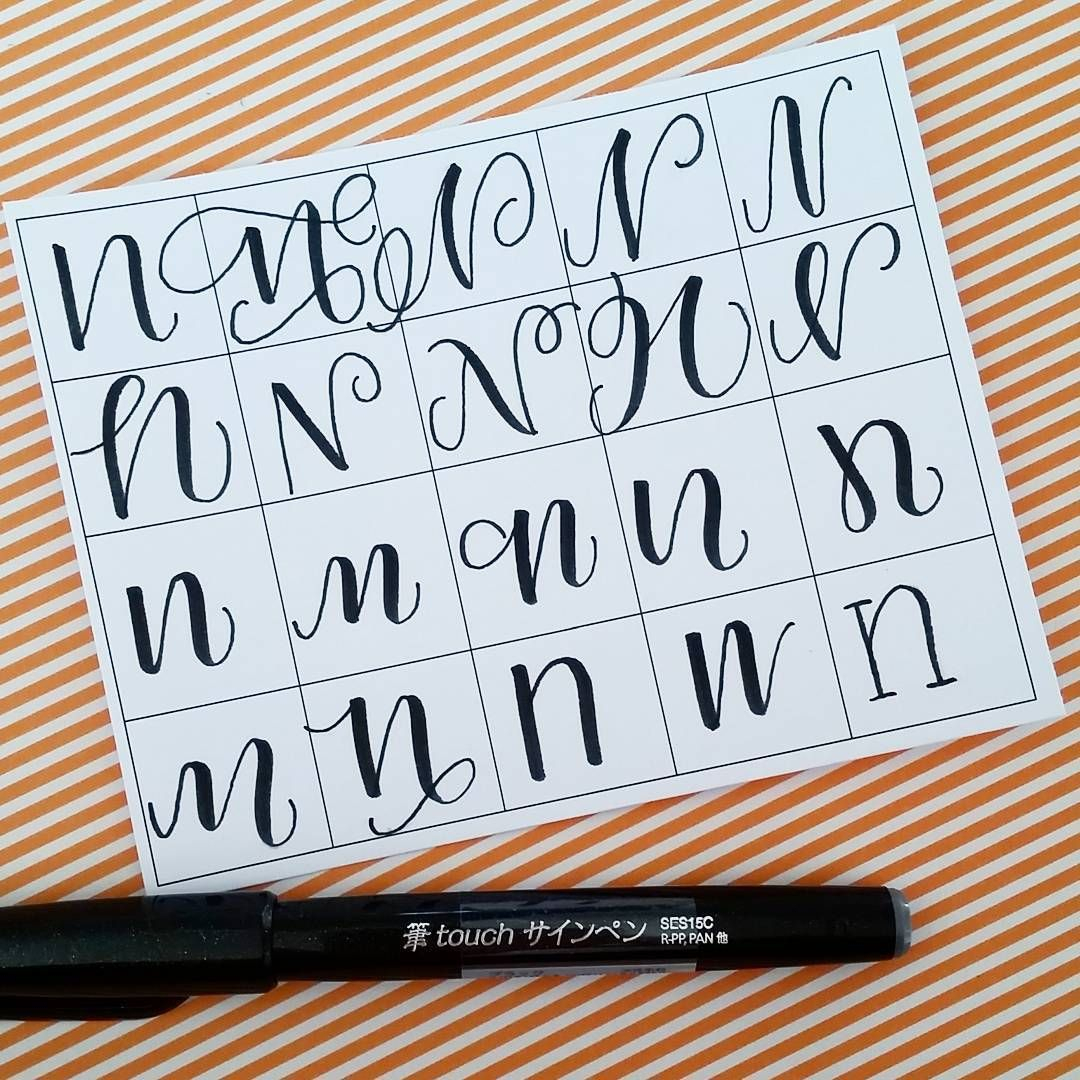 n n N N N
n N N n N
n n n n n
n n n n n
筆touch サインペン SES15C
R-PP, PAN 他